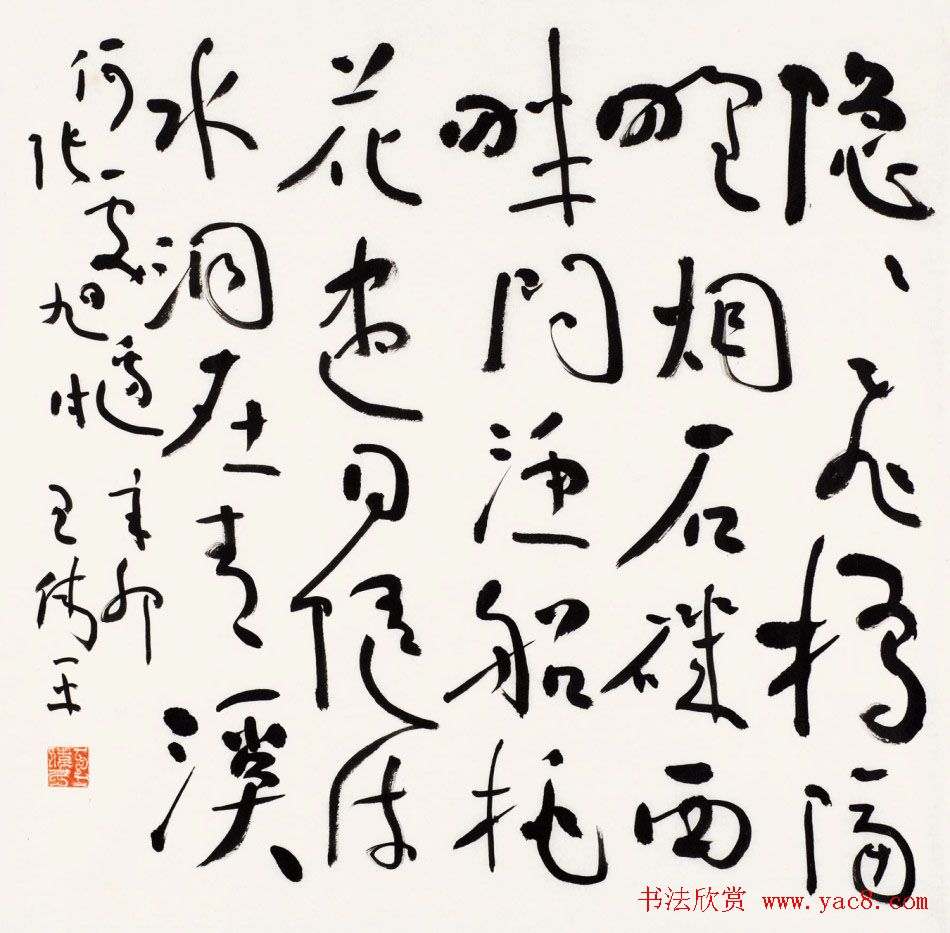 隐、飞桥隔
野烟石矶西
畔问渔船桃
花尽日随流
水洞在青溪
何处边 辛卯
张旭诗 王伟平
书法欣赏 www.yac8.com